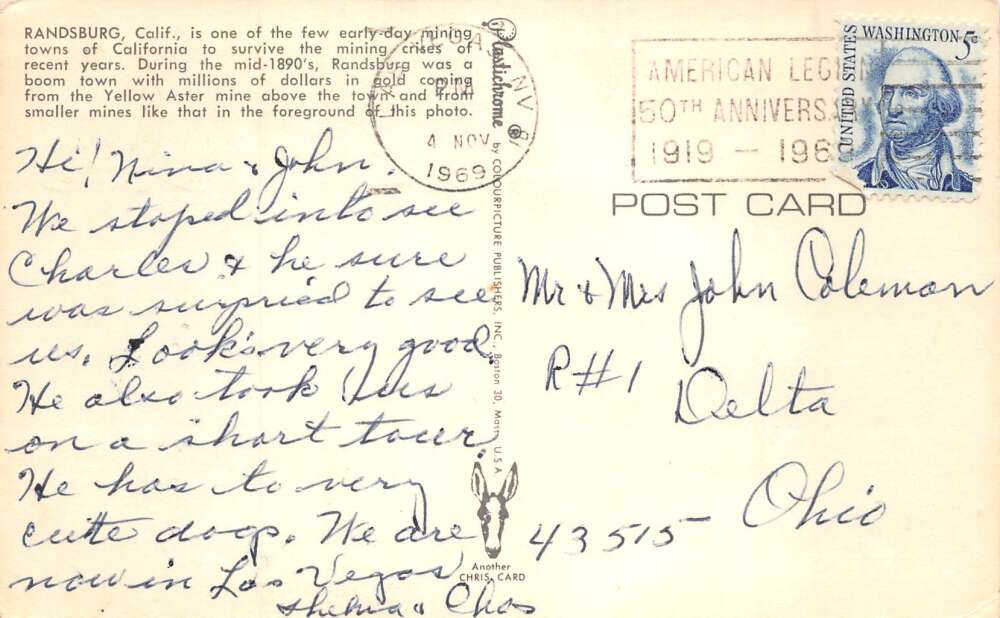 RANDSBURG, Calif., is one of the few early-day mining
towns of California to survive the mining crises of
recent years. During the mid-1890's, Randsburg was a
boom town with millions of dollars in gold coming
from the Yellow Aster mine above the town and from
smaller mines like that in the foreground of this photo.
Hi! Nina & John.
We stoped into see
Charles & he sure
was surpried to see
us. Look's very good.
He also took us
on a short tour.
He has to very
cutte dogs. We are
now in Las Vegas
Thelma & Chas
Plastichrome ®
by COLOURPICTURE PUBLISHERS, INC., Boston 30, Mass., U.S.A.
Another
CHRIS CARD
NV
PM
4 NOV
1969
AMERICAN LEGION
50TH ANNIVERSARY
1919 — 1969
UNITED STATES
WASHINGTON 5c
POST CARD
Mr & Mrs John Coleman
R#1
Delta
Ohio
43515